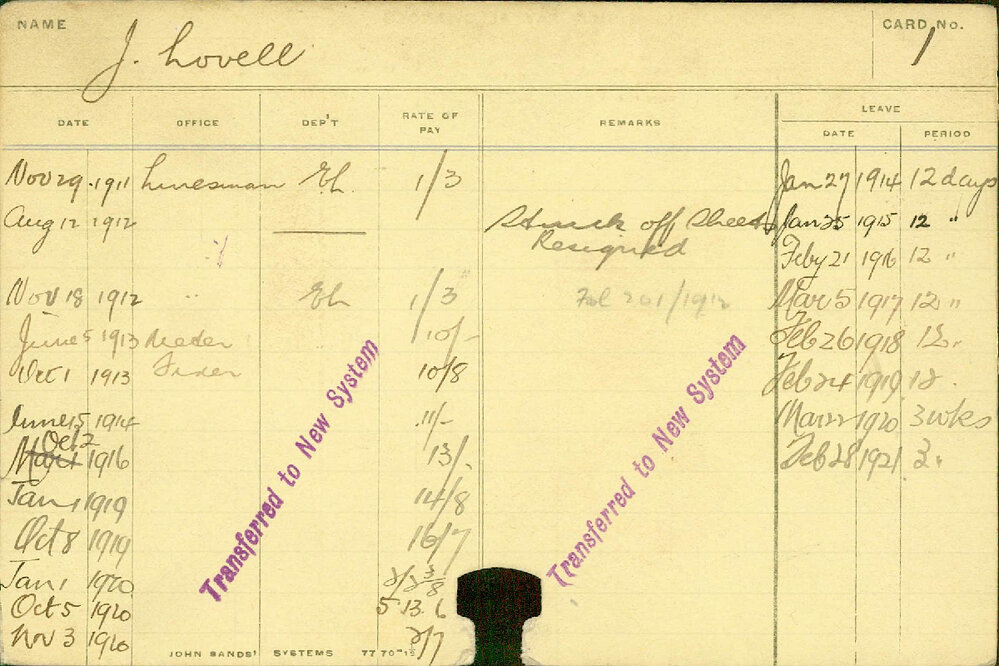 NAME
J. Lovell
CARD No.
1
DATE OFFICE DEP'T RATE OF PAY REMARKS LEAVE
DATE PERIOD
Nov 29 1911 Linesman El. 1/3 Jan 27 1914 12 days
Aug 12 1912 Struck off Sheets Jan 25 1915 12 "
Resigned
Feby 21 1916 12 "
Nov 18 1912 " El 1/3 Fol 201/1912 Mar 5 1917 12 "
June 5 1913 Meter 10/- Feb 26 1918 12 "
Oct 1 1913 Fixer 10/8 Feb 24 1919 12 "
June 15 1914 11/- Mar 22 1920 3 wks
Oct 2
Mar 1 1916 13/- Feb 28 1921 3 "
Jan 1 1919 14/8
Oct 8 1919 16/7
Jan 1 1920
Oct 5 1920 5.13.6
Nov 3 1920 2/7
Transferred to New System
Transferred to New System
JOHN SANDS' SYSTEMS